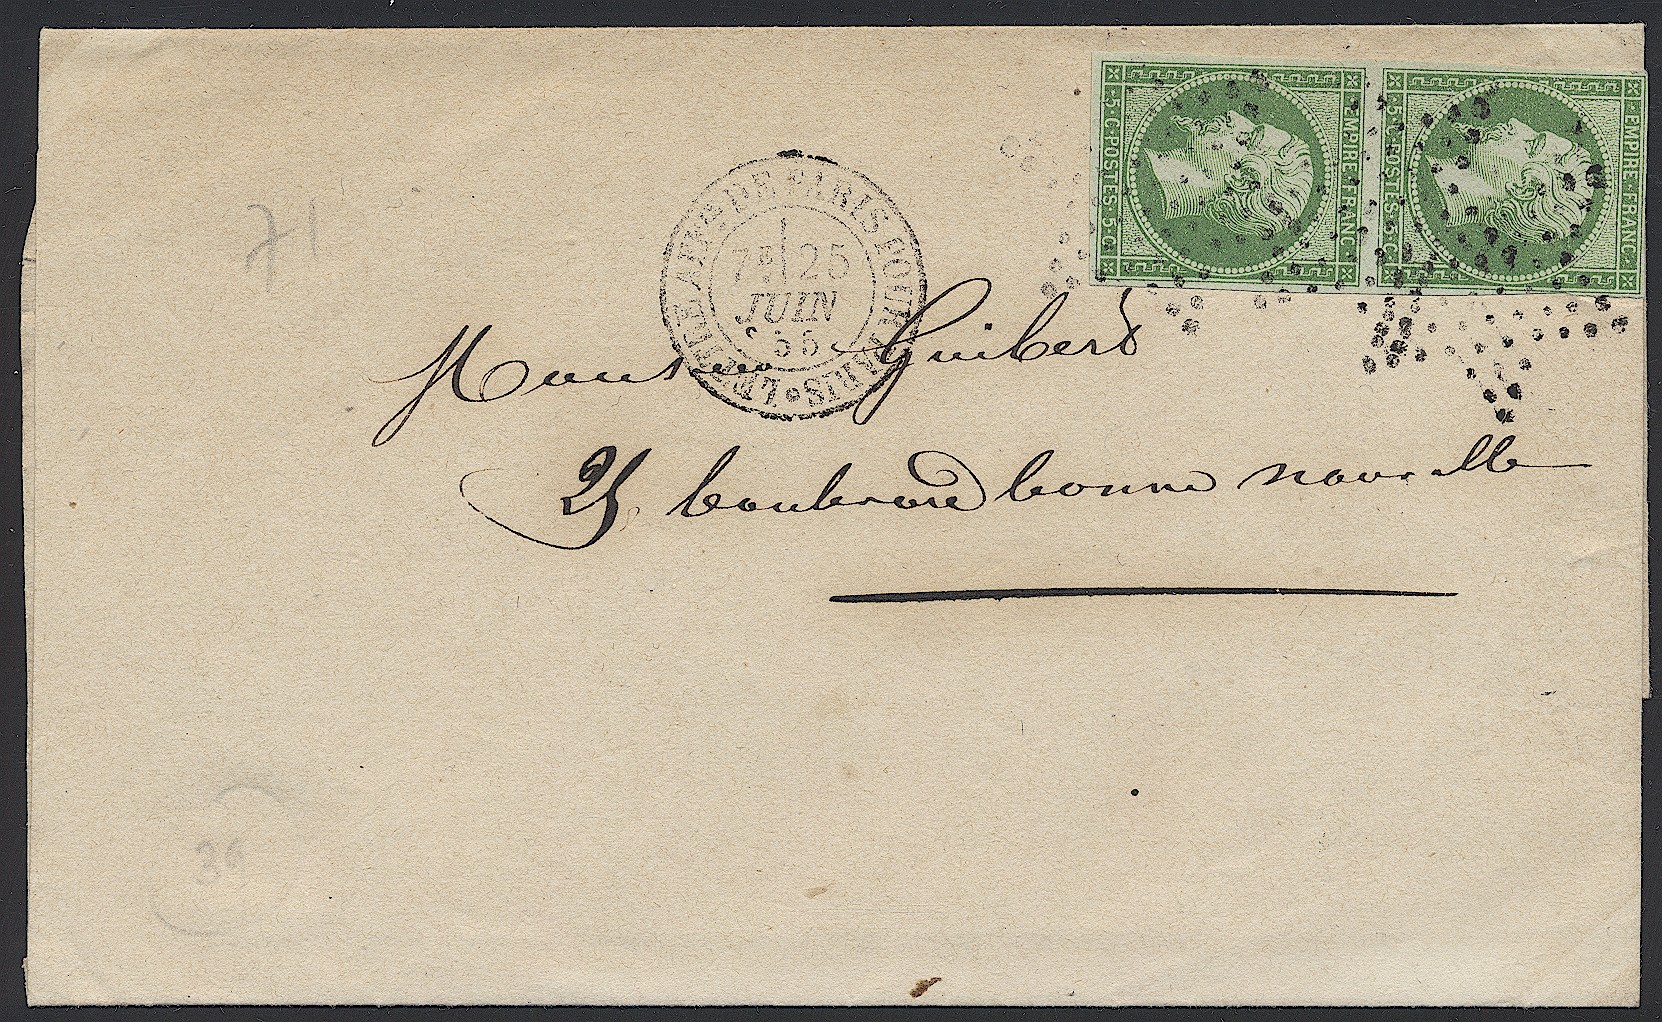 EMPIRE·FRANC·
·5·C·POSTES·5·C·
EMPIRE·FRANC·
·5·C·POSTES·5·C·
DE PARIS POUR PARIS
7E 25
JUIN
55
71
Monsieur Guibert
25 boulevard bonne nouvelle
36